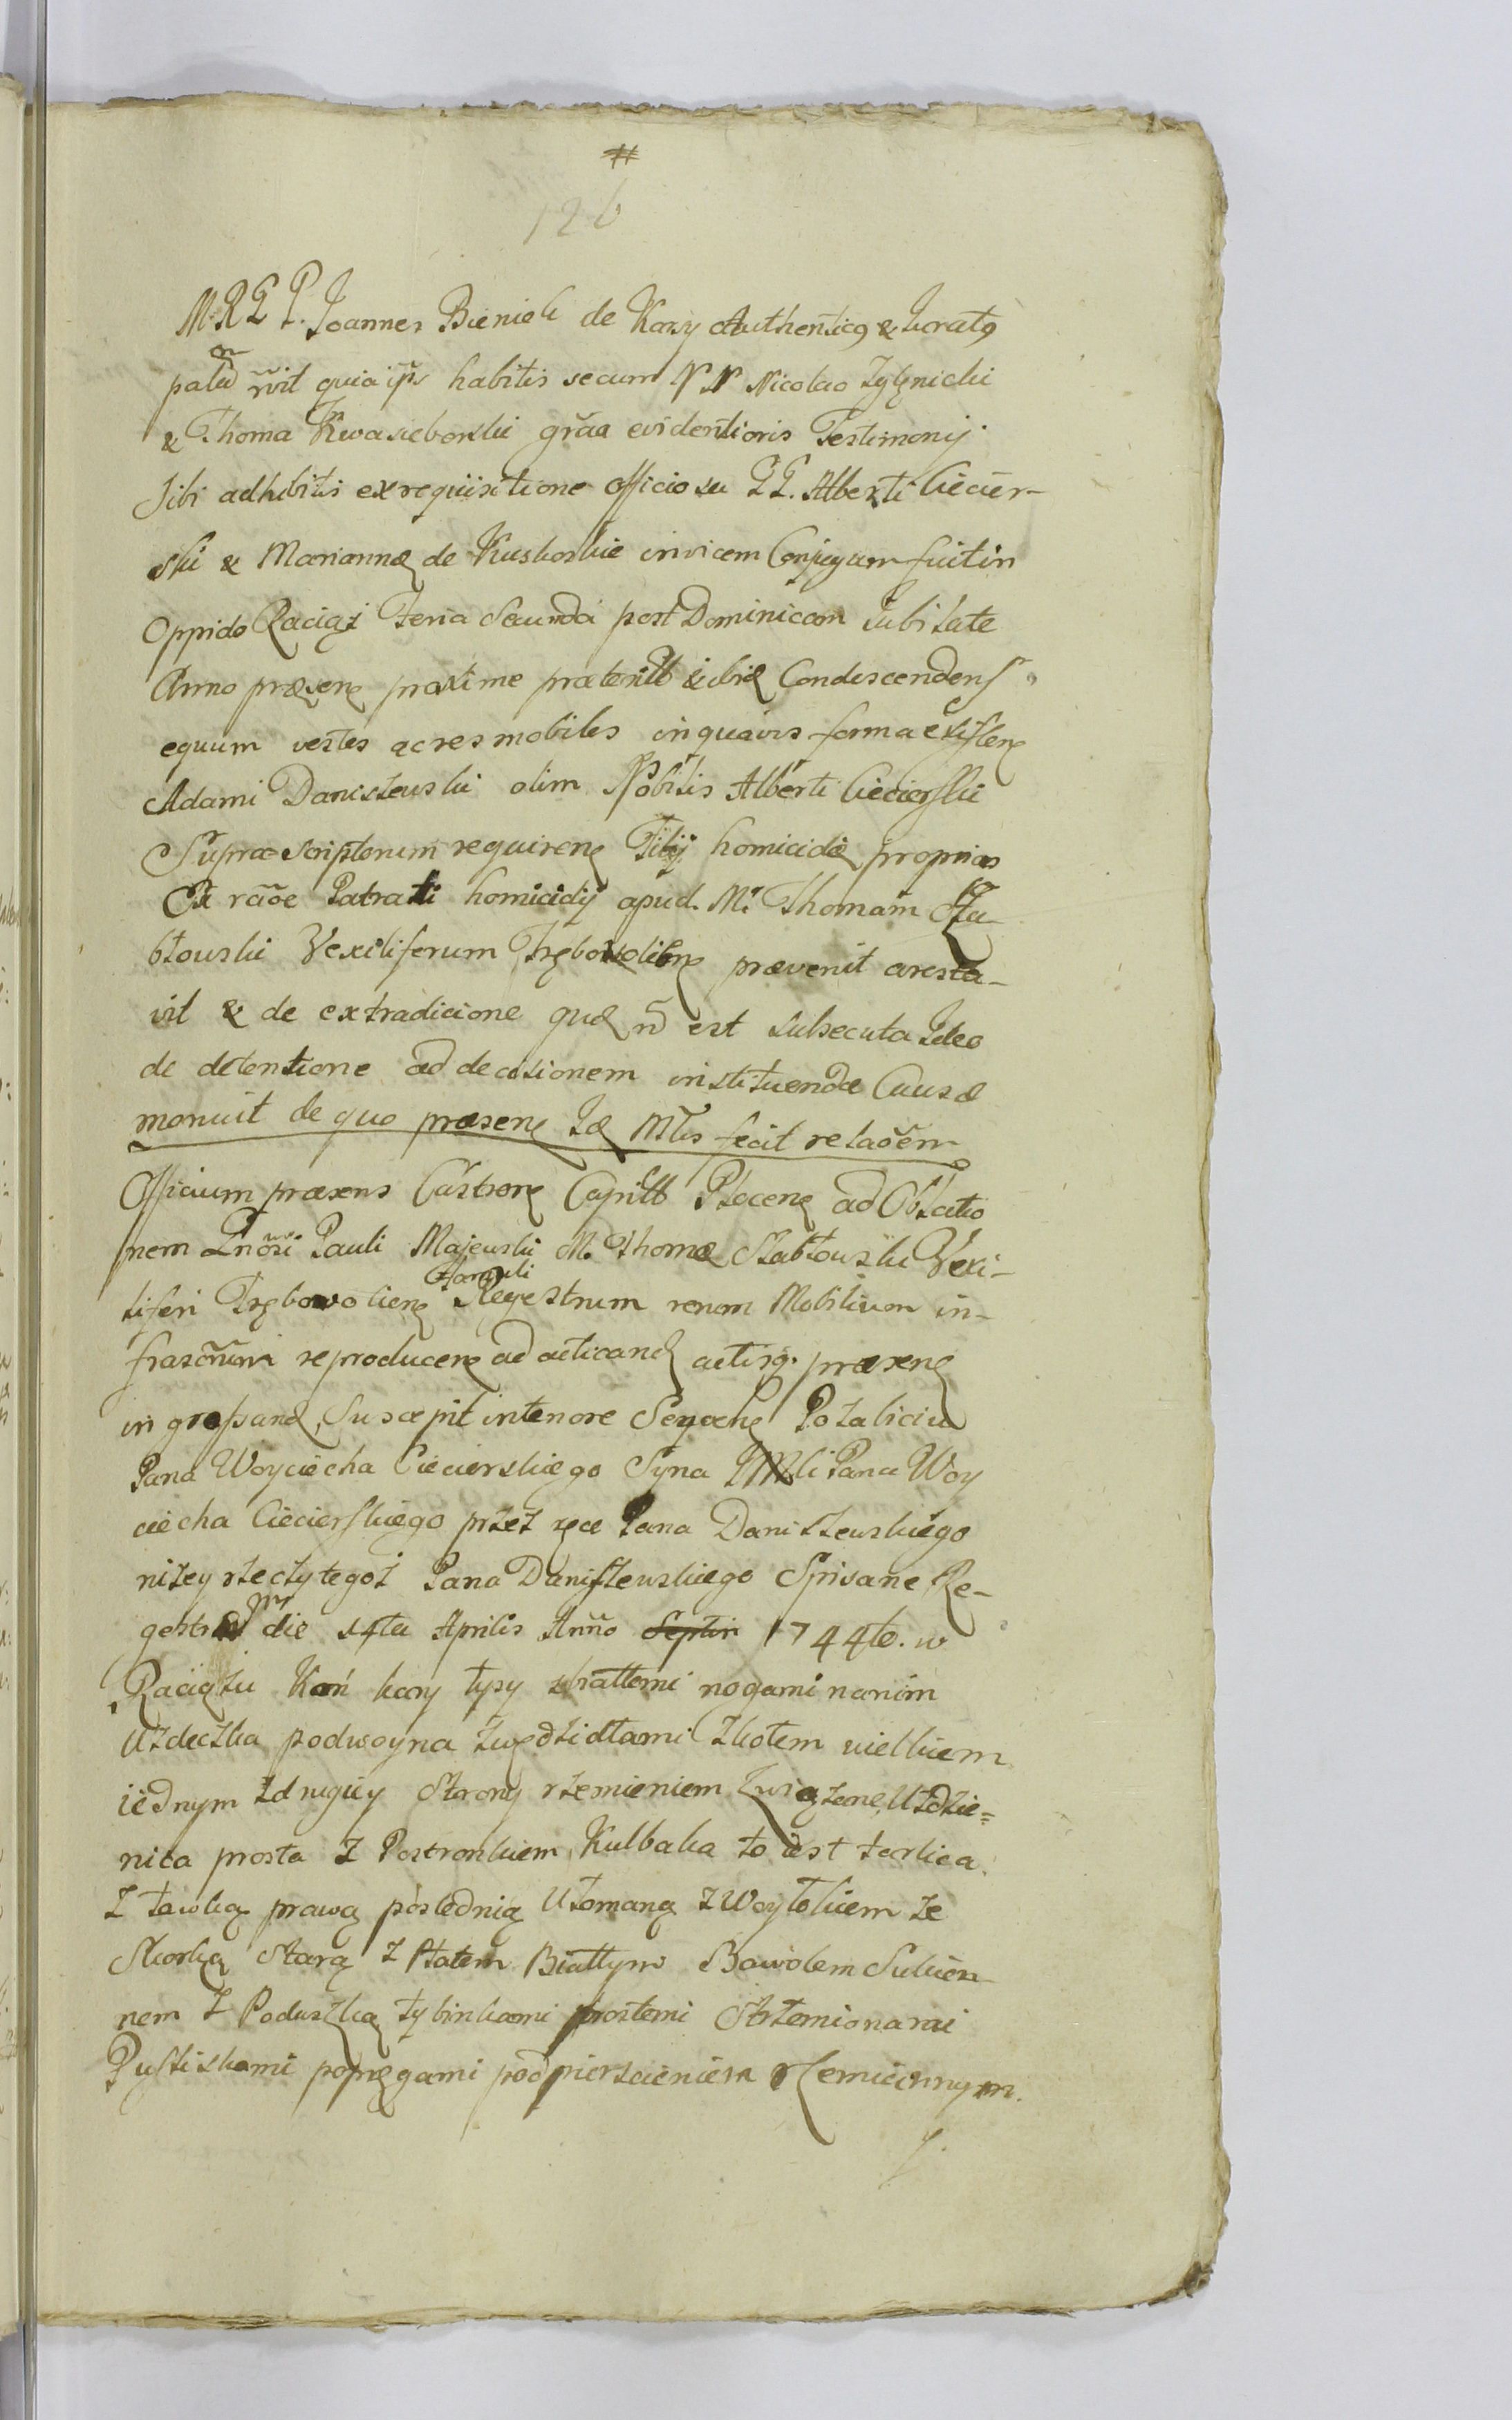 #
126
M. R. E P. Joannes Bieniek de Kozy Authentic9 & Jurat9
palā r̃vit quia ip̃s habitis secum N N Nicolao Zyžnicki
& Thoma Kwasieborski grãa evidentioris Testimonij
sibi adhibitis ex requisitione officiosa GG. Alberti Ciecier-
ski & Mariannæ de Kuskoskie invicem Conjugum fuit in
Oppido Raciąż Feria Secunda post Dominicam Jubilate
Anno præsenę proxime præterito & ibię Condescendens
equum vestes ac res mobiles in quavis forma existenę
Adami Daniszewski olim Nobilis Alberti Ciecierski
Supra Scriptorum requirenę Filij homicidæ proprias
Et rãoe Patrati homicidij apud M. Thomam Sza-
błowski Vexiliferum Trębowolienę prævenit aresta-
vit & de extradicione quæ ñ est subsecuta Ideo
de detentione ad decisionem instituendæ Causæ
monuit de quo præsenę Ide Mtis fecit relaõem
Officium præsens Castrenę Capitł Płocenę ad Oblatio
nem Gnõsi Pauli Majewski M. Thomæ Szabłowski Vexi-
liferi Trębowolienę Famuli Regestrum rerum Mobilium in-
frascr̃rum reproducenę ad acticandę actisq. præsenę
ingrossandę, Suscepit in tenore Seqvenę Po zabiciu
Pana Woyciecha Ciecierskiego Syna JMci Pana Woy
ciecha Ciecierskiego przez ręce Pana Daniszewskiego
niżey rzeczy tegoż Pana Daniszewskiego Spisane Re-
gestrem die 24ta Aprilis Anno Septin 1744to. w
Raciążu Koń kary łysy zbiałłemi nogami nanim
Uzdeczka podwoyna zwędzidłami zkołem wielkiem
iednym zdrugiey Strony rzemieniem związane, Uzdzie=
nica prosta z Postronkiem, Kulbaka to iest terlica
z ławką prawą poslednią Ułomaną z Woyłokiem ze
Skorką Starą z Płatem Białłym Bawołem Sukien-
nem z Poduszką tybinkami prostemi Strzemionami
Puslikami popręgami podpierscieniem rzemiennym.